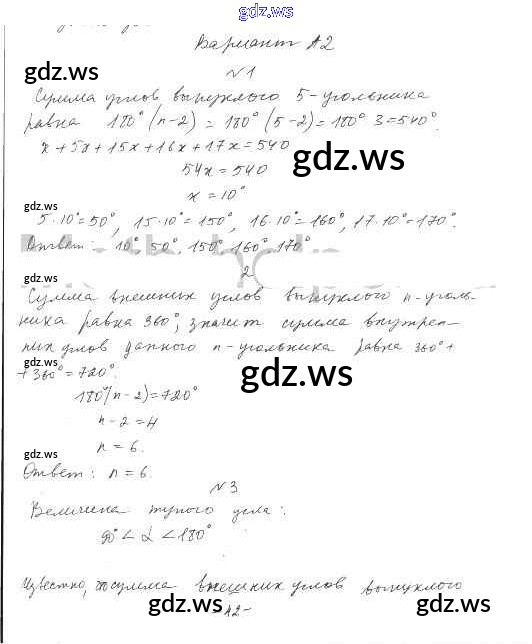 gdz.ws
Вариант А2
gdz.ws
№1
Сумма углов выпуклого 5-угольника
равна 180°(n-2) = 180°(5-2) = 180° 3 = 540°.
x + 5x + 15x + 16x + 17x = 540
gdz.ws
54x = 540
x = 10°
gdz.ws
5·10° = 50°, 15·10° = 150°, 16·10° = 160°, 17·10° = 170°.
Ответ: 10° 50° 150° 160° 170°
2
gdz.ws
Сумма внешних углов выпуклого n-уголь-
ника равна 360°, значит сумма внутрен-
них углов данного n-угольника равна 360° +
+ 360° = 720°.
gdz.ws
gdz.ws
180°(n-2) = 720°
n - 2 = 4
n = 6.
gdz.ws
Ответ: n = 6.
№3
Величина тупого угла:
90° < α < 180°
gdz.ws
Известно, что сумма внешних углов выпуклого
gdz.ws
-42-
gdz.ws